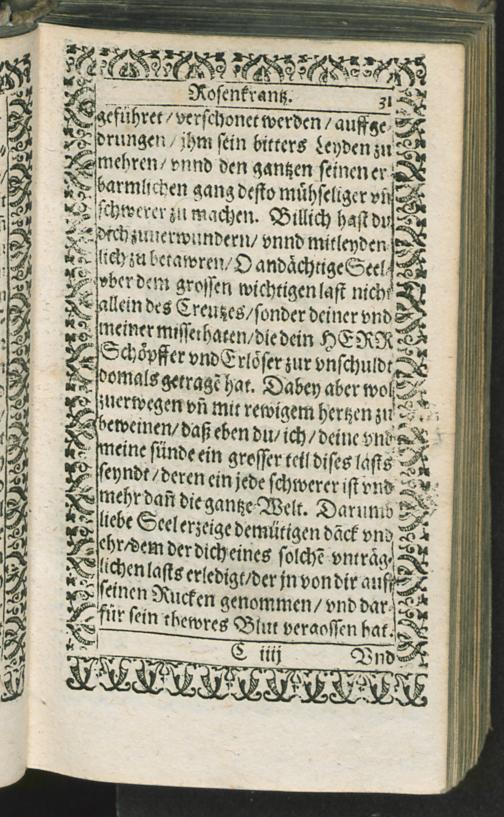 Rosenkrantz. 31
geführet / verschonet werden / auff ge-
drungen / jhm sein bitters Leyden zu
mehren / vnnd den gantzen seinen er-
barmlichen gang desto mühseliger vn̄
schwerer zu machen. Billich hast du
dich zuuerwundern / vnnd mitleyden-
lich zu betawren / O andächtige Seel /
vber dem grossen wichtigen last nicht
allein des Creutzes / sonder deiner vnd
meiner missethaten / die dein HERR
Schöpffer vnd Erlöser zur vnschuldt
domals getragē hat. Dabey aber wol
zuerwegen vn̄ mit rewigem hertzen zu
beweinen / daß eben du / ich / deine vnd
meine sünde ein grosser teil dises lasts
seyndt / deren ein jede schwerer ist vnd
mehr dan̄ die gantze Welt. Darumb
liebe Seel erzeige demütigen dāck vnd
ehr / dem der dich eines solchē vnträg-
lichen lasts erledigt / der jn von dir auff
seinen Rucken genommen / vnd dar-
für sein thewres Blut vergossen hat.
C iiij Vnd